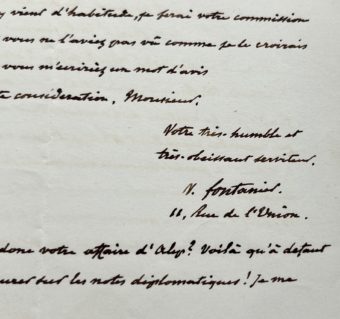 vient d'habitude, je ferai votre commission
vous ne l'aviez pas vû comme je le croirais
vous m'écririez un mot d'avis
considération, Monsieur.
Votre très-humble et
très-obéissant serviteur.
V. fontanier.
11, Rue de l'Union.
donc votre affaire d'Alep? Voilà qu'à défaut
sur les notes diplomatiques! Je me